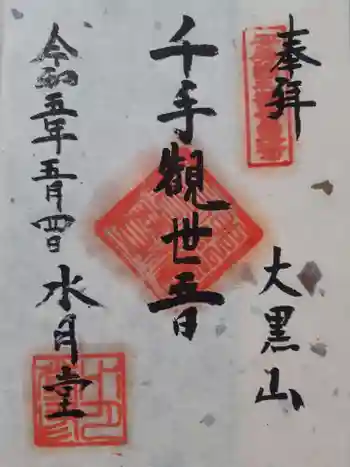 奉拝
大黒山
千手観世音
令和五年五月四日
水月堂